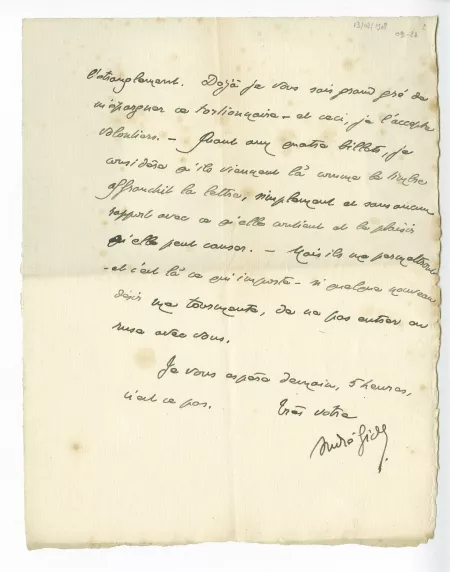 l'étranglement. Déjà je vous sais grand gré de
m'épargner ce tortionnaire - et ceci, je l'accepte
volontiers. - Quant aux quatre billets, je
considère qu'ils viennent là comme le timbre
affranchit la lettre, simplement et sans aucun
rapport avec ce qu'elle contient et le plaisir
qu'elle peut causer. - Mais ils me permettront
- et c'est là ce qui importe - si quelque nouveau
désir me tourmente, de ne pas entrer en
ruse avec vous.
Je vous espère demain, 5 heures,
n'est ce pas.
Très votre
André Gide